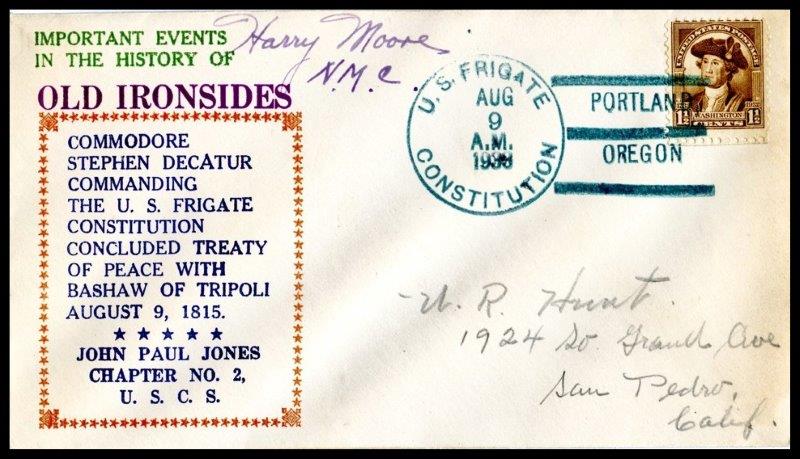 IMPORTANT EVENTS
IN THE HISTORY OF
OLD IRONSIDES
COMMODORE
STEPHEN DECATUR
COMMANDING
THE U. S. FRIGATE
CONSTITUTION
CONCLUDED TREATY
OF PEACE WITH
BASHAW OF TRIPOLI
AUGUST 9, 1815.
★ ★ ★ ★ ★
JOHN PAUL JONES
CHAPTER NO. 2,
U. S. C. S.
Harry Moore
N.M.C.
U.S. FRIGATE
AUG
9
A.M.
1933
CONSTITUTION
PORTLAND
OREGON
UNITED STATES POSTAGE
WASHINGTON
1½ CENTS 1½
W. R. Hunt.
1924 So Grand Ave
San Pedro,
Calif.